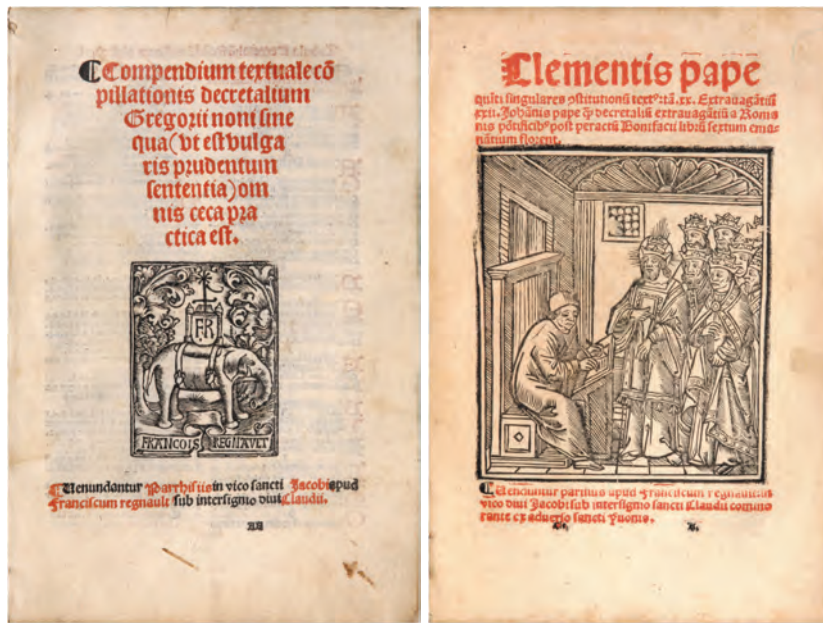 Compendium textuale cõ
pillationis decretalium
Gregorii noni sine
qua (vt est vulga
ris prudentum
sententia) om
nis ceca pra
ctica est.
FR
FRANCOIS REGNAVLT
Uenundantur Parrhisiis in vico sancti Jacobi apud
Franciscum regnault sub intersignio diui Claudii.
Clementis pape
quīti singulares ꝯstitutionū textꝰ: tā .xx. Extrauagātiū
xxii. Johānis pape ꝙ̄ decretaliū extrauagātiū a Roma
nis pōtificibꝰ post peractū Bonifacii librū sextum ema-
nātium florent.
Uenduntur parisius apud Franciscum regnault in
vico diui Jacobi sub intersignio sancti Claudii commo
rante ex aduerso sancti Yuonis.